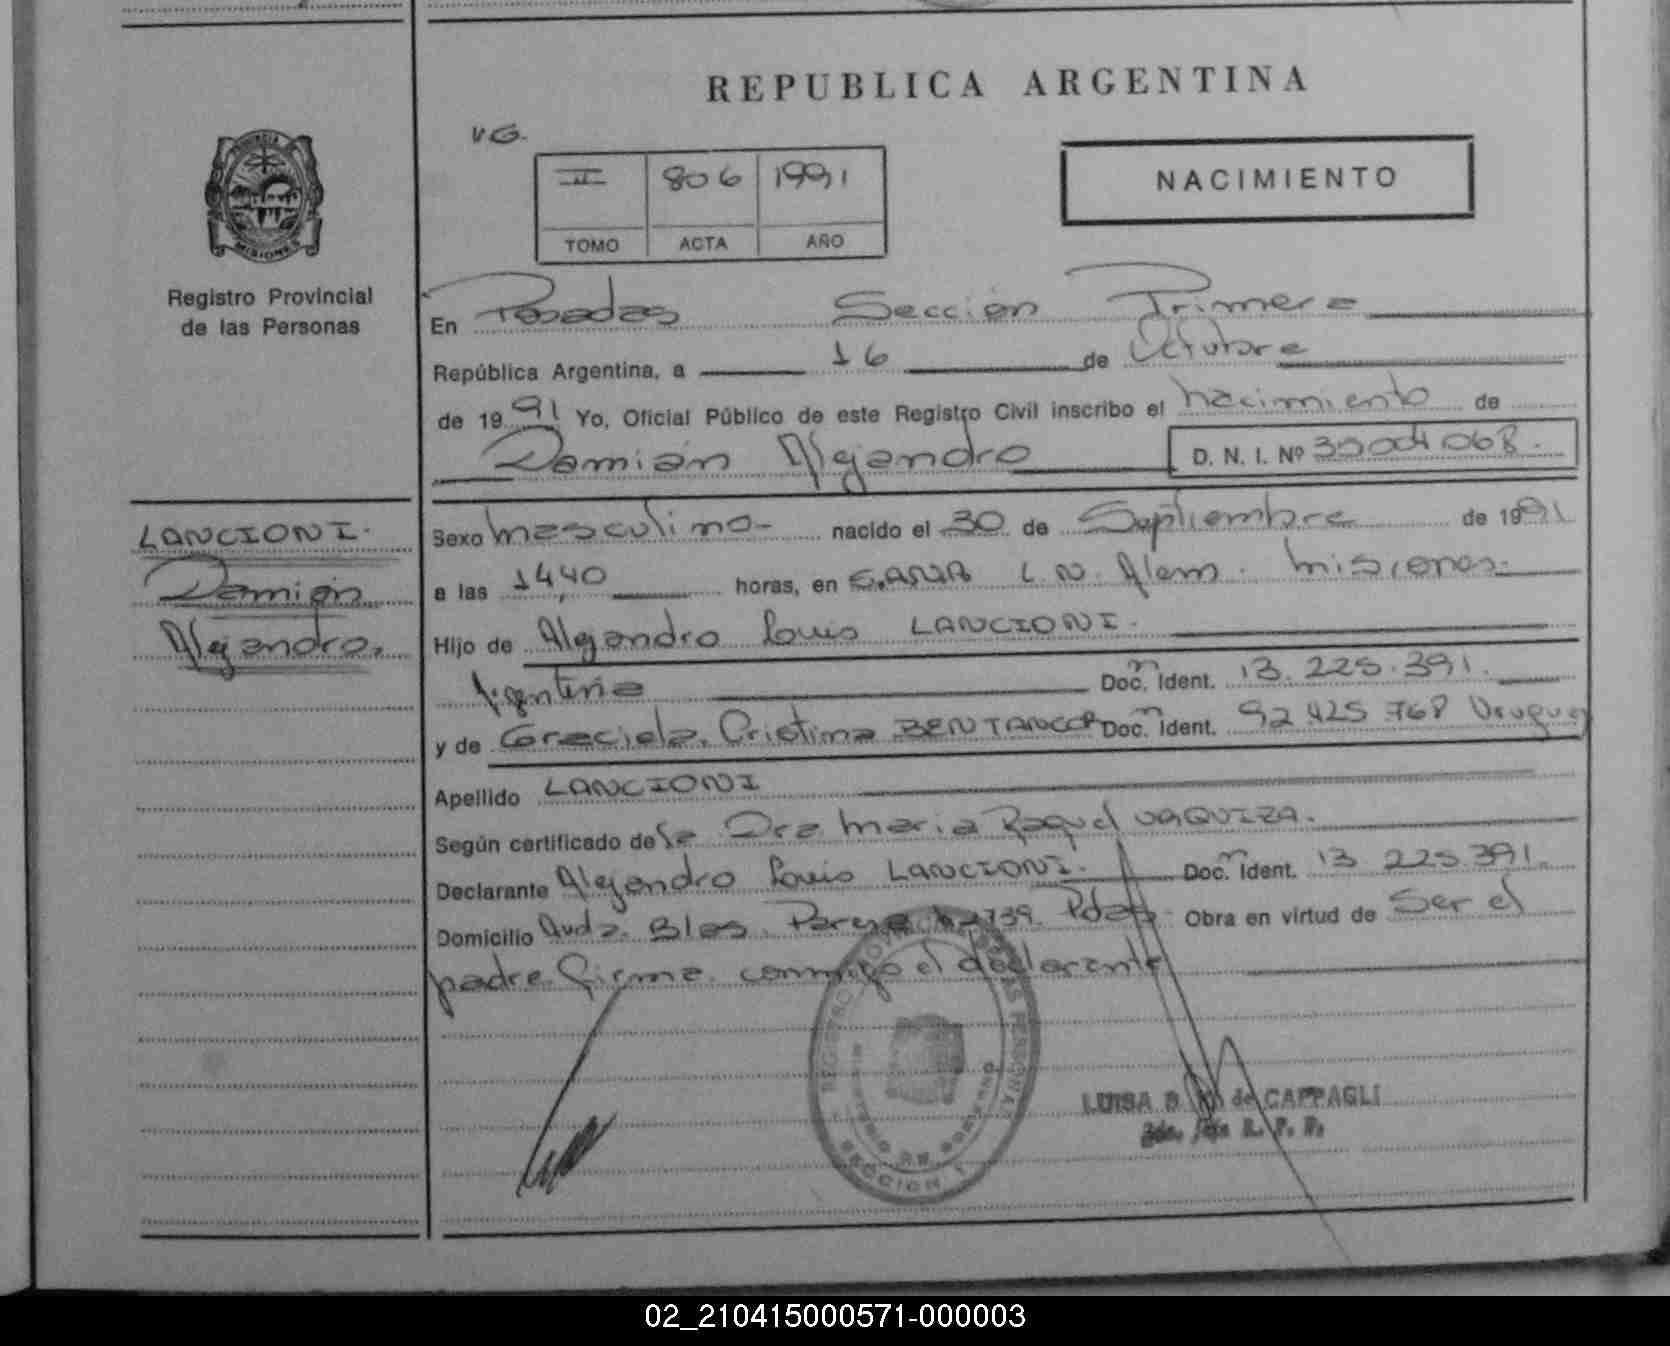 REPUBLICA ARGENTINA
V.G.
II 806 1991
TOMO ACTA AÑO
NACIMIENTO
PROVINCIA
MISIONES
Registro Provincial
de las Personas
En Posadas Sección Primera
República Argentina, a 16 de Octubre
de 1991 Yo, Oficial Público de este Registro Civil inscribo el nacimiento de
Damián Alejandro D. N. I. Nº
LANCIONI.
Damián
Alejandro.
Sexo masculino- nacido el 30 de Septiembre de 1991
a las 14,40 horas, en L. N. Alem. Misiones.
Hijo de Alejandro Louis LANCIONI.
Argentina Doc. Ident. 13.225.391.
y de Graciela Cristina BENTANCOR Doc. Ident. 92 425 768 Uruguay
Apellido LANCIONI
Según certificado de la Dra Maria Raquel
Declarante Alejandro Louis LANCIONI. Doc. Ident. 13 225.391.
Domicilio Avda. Blas Parera Pdas. Obra en virtud de Ser el
padre firma conmigo el declarante
REGISTRO PROVINCIAL DE LAS PERSONAS
MINISTERIO DE GOBIERNO
SECCION 1
LUISA B. de CAPPAGLI
R. P. P.
02_210415000571-000003